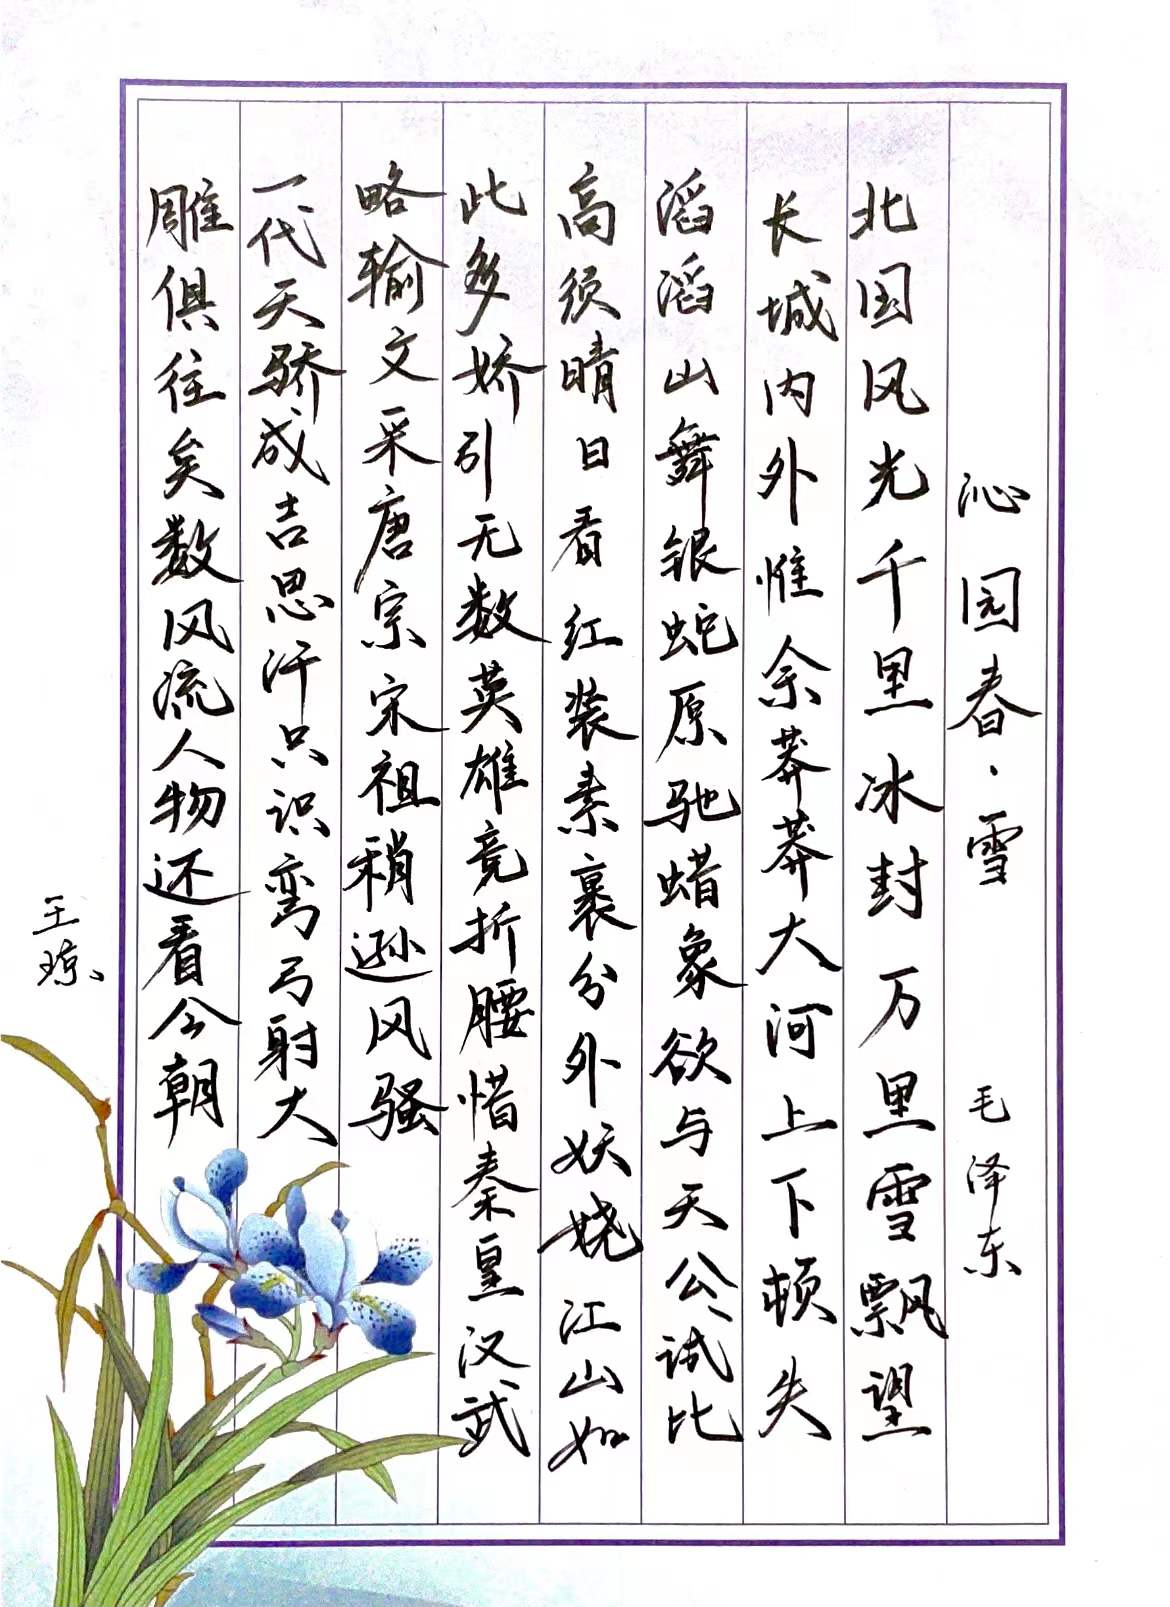 沁园春·雪 毛泽东
北国风光千里冰封万里雪飘望
长城内外惟余莽莽大河上下顿失
滔滔山舞银蛇原驰蜡象欲与天公试比
高须晴日看红装素裹分外妖娆江山如
此多娇引无数英雄竞折腰惜秦皇汉武
略输文采唐宗宋祖稍逊风骚
一代天骄成吉思汗只识弯弓射大
雕俱往矣数风流人物还看今朝
王琼